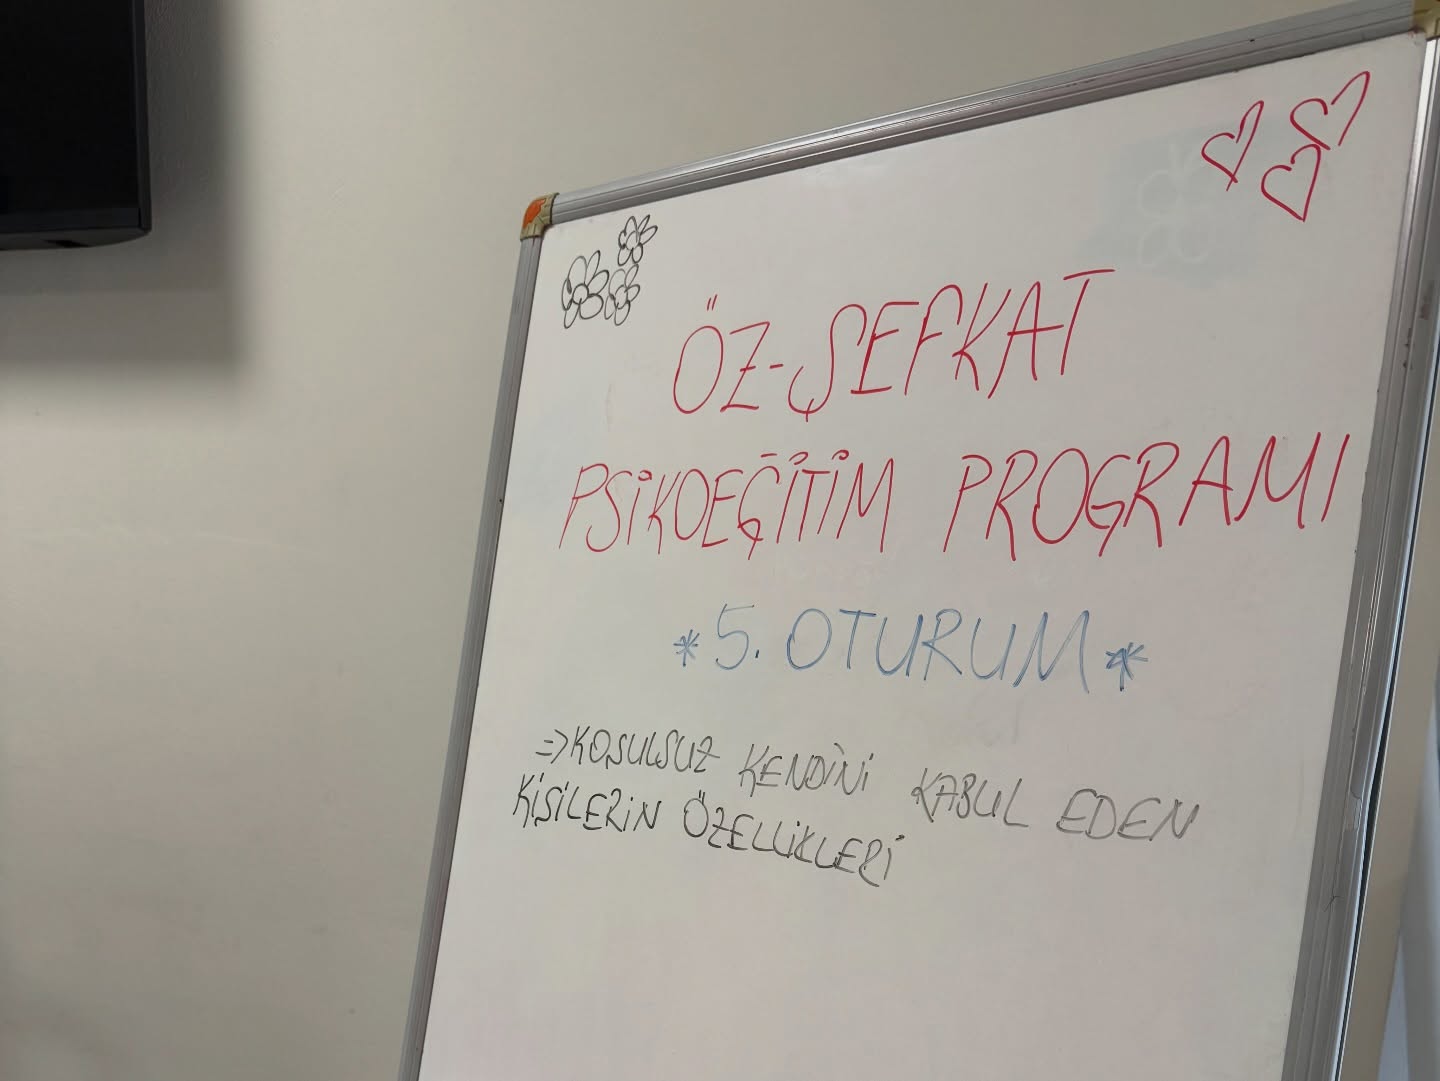 ÖZ-ŞEFKAT
PSİKOEĞİTİM PROGRAMI
*5. OTURUM*
=>KOŞULSUZ KENDİNİ KABUL EDEN
KİŞİLERİN ÖZELLİKLERİ